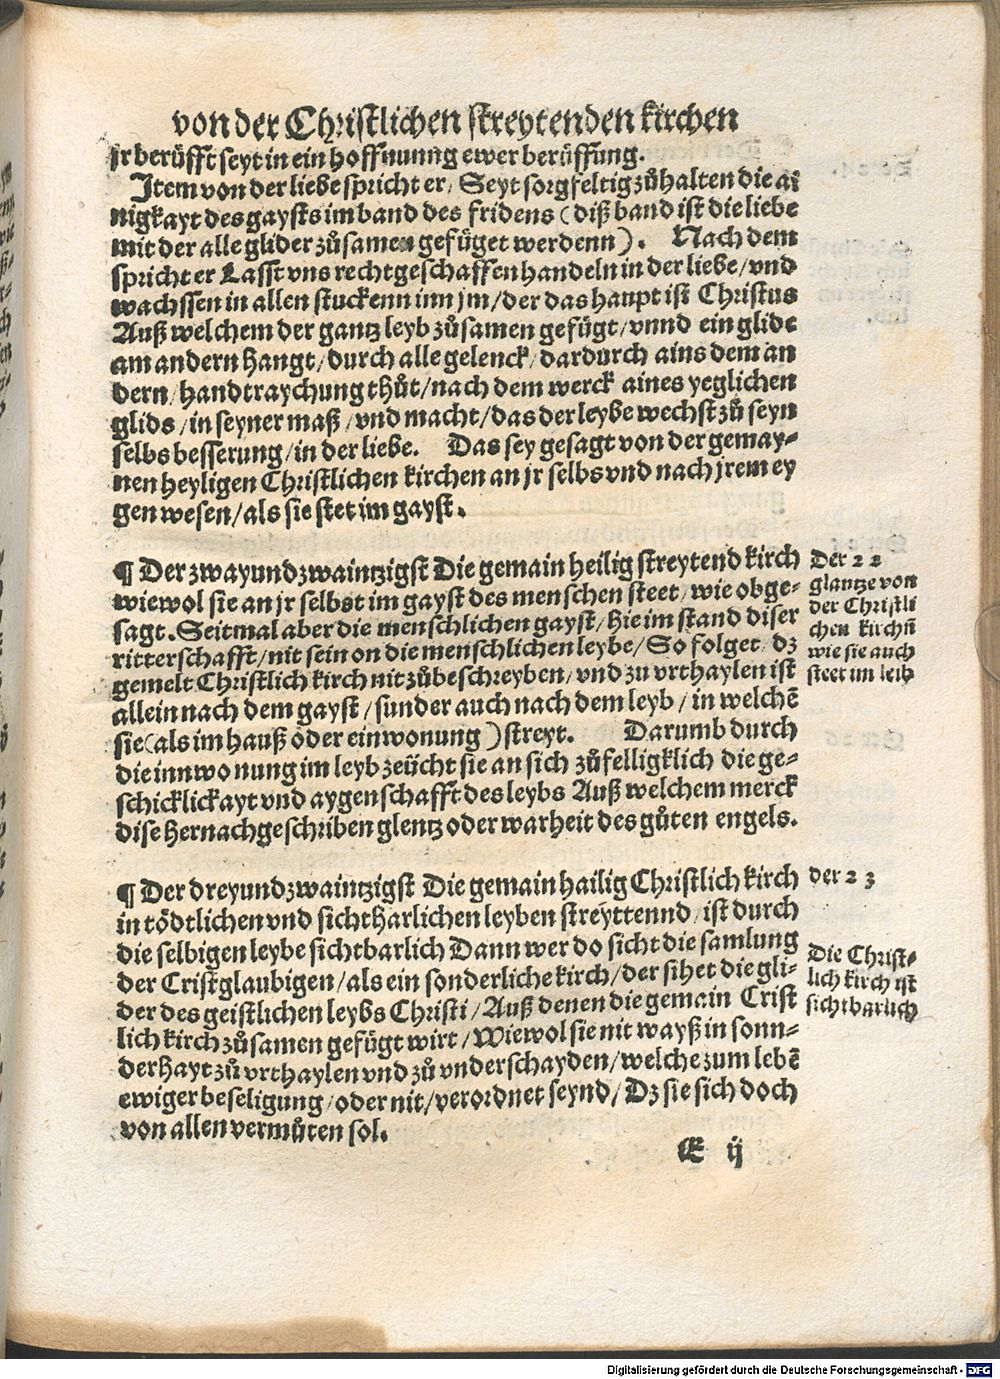 von der Christlichen streytenden kirchen
jr berüfft seyt in ein hoffnunng ewer berüffung.
Item von der liebe spricht er/ Seyt sorgfeltig zůhalten die ai
nigkayt des gaysts im band des fridens (diß band ist die liebe
mit der alle glider zůsamen gefüget werdenn). Nach dem
spricht er Lasst vns rechtgeschaffen handeln in der liebe/vnd
wachssen in allen stuckenn inn jm/der das haupt ist Christus
Auß welchem der gantz leyb zůsamen gefügt/vnnd ein glide
am andern hangt/durch alle gelenck/dardurch ains dem an
dern/handtraychung thůt/nach dem werck aines yeglichen
glids/in seyner maß/vnd macht/das der leybe wechst zů seyn
selbs besserung/in der liebe. Das sey gesagt von der gemay-
nen heyligen Christlichen kirchen an jr selbs vnd nach jrem ey
gen wesen/als sie stet im gayst.
¶ Der zwayundzwaintzigst Die gemain heilig streytend kirch
wiewol sie an jr selbst im gayst des menschen steet/wie obge-
sagt. Seitmal aber die menschlichen gayst/hie im stand diser
ritterschafft/nit sein on die menschlichen leybe/So folget dz
gemelt Christlich kirch nit zůbeschreyben/vnd zu vrthaylen ist
allein nach dem gayst/sunder auch nach dem leyb/in welchē
sie (als im hauß oder einwonung) streyt. Darumb durch
die innwonung im leyb zeücht sie an sich zůfelligklich die ge-
schicklickayt vnd aygenschafft des leybs Auß welchem merck
dise hernachgeschriben glentz oder warheit des gůten engels.
Der 22
glantze von
der Christli
chen kirchñ
wie sie auch
steet im leib
¶ Der dreyundzwaintzigst Die gemain hailig Christlich kirch
in tödtlichen vnd sichtharlichen leyben streyttennd/ist durch
die selbigen leybe sichtbarlich Dann wer do sicht die samlung
der Cristglaubigen/als ein sonderliche kirch/der sihet die gli-
der des geistlichen leybs Christi/Auß denen die gemain Crist
lich kirch zůsamen gefügt wirt/Wiewol sie nit wayß in sonn-
derhayt zů vrthaylen vnd zů vnderschayden/welche zum lebē
ewiger beseligung/oder nit/verordnet seynd/Dz sie sich doch
von allen vermůten sol.
der 23
Die Christ-
lich kirch ist
sichtbarlich
E ij
Digitalisierung gefördert durch die Deutsche Forschungsgemeinschaft - DFG